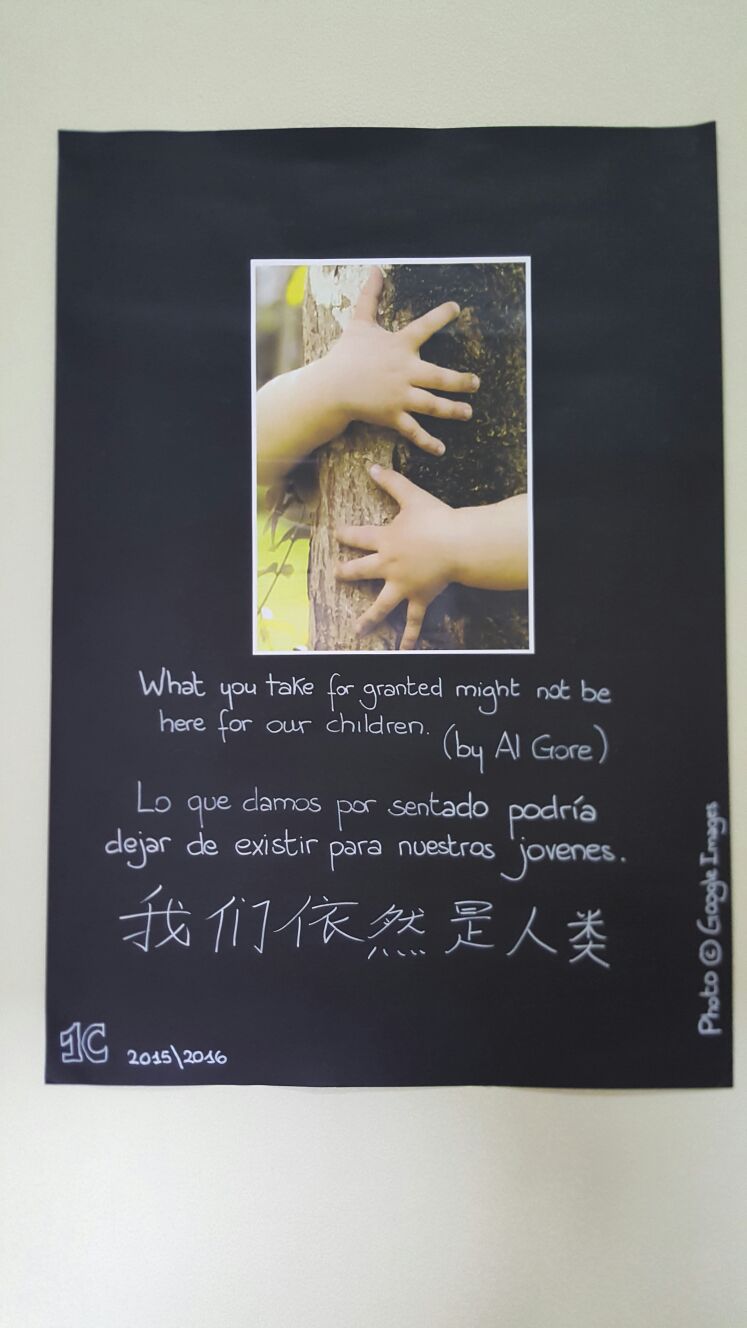 What you take for granted might not be
here for our children.
(by Al Gore)
Lo que damos por sentado podría
dejar de existir para nuestros jovenes.
我们依然是人类
1C
2015\2016
Photo © Google Images